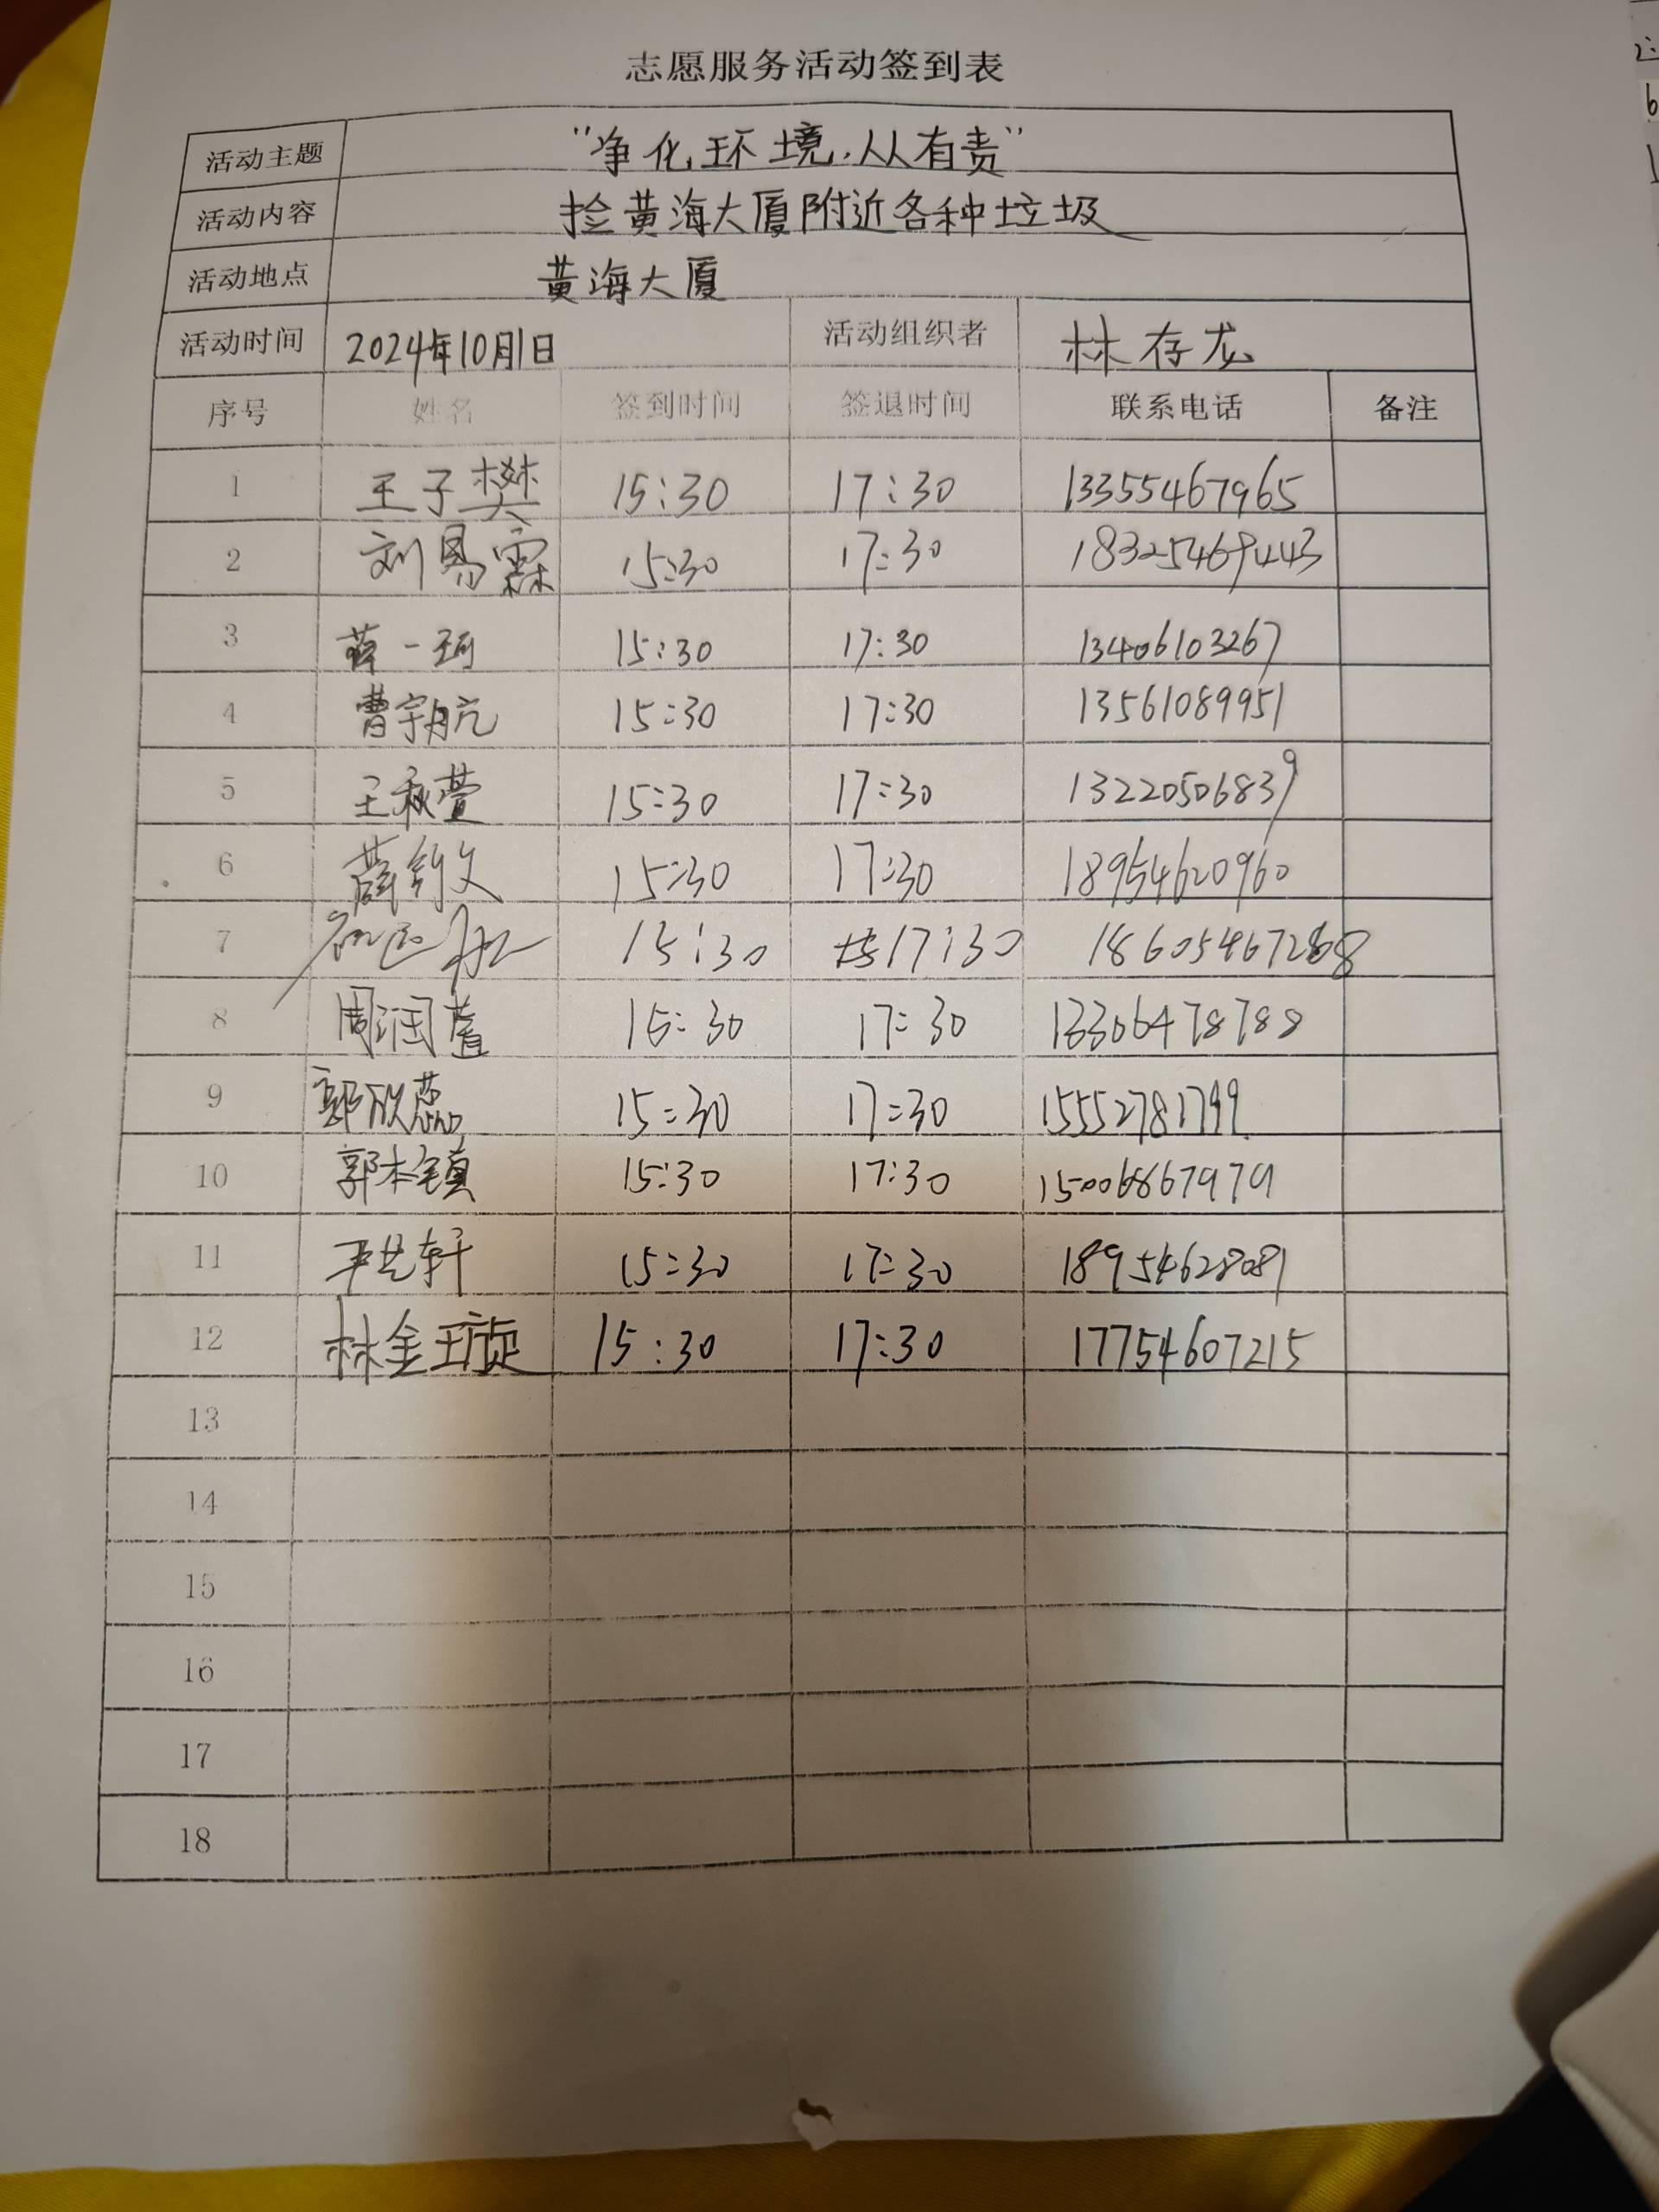 志愿服务活动签到表
活动主题 "净化环境,从有责"
活动内容 捡黄海大厦附近各种垃圾
活动地点 黄海大厦
活动时间 2024年10月1日 活动组织者 林存龙
序号 姓名 签到时间 签退时间 联系电话 备注
1 王子樊 15:30 17:30 13355467965
2 刘易霖 15:30 17:30 18325469443
3 薛一珂 15:30 17:30 13406103267
4 曹宇航 15:30 17:30 13561089951
5 王秋萱 15:30 17:30 13220506839
6 薛钧文 15:30 17:30 18954620960
7 15:30 17:30
8 周润萱 15:30 17:30 13306478788
9 郭欣蕊 15:30 17:30 15552781799
10 郭本镇 15:30 17:30 15006867979
11 15:30 17:30 18954628081
12 林金璇 15:30 17:30 17754607215
13
14
15
16
17
18